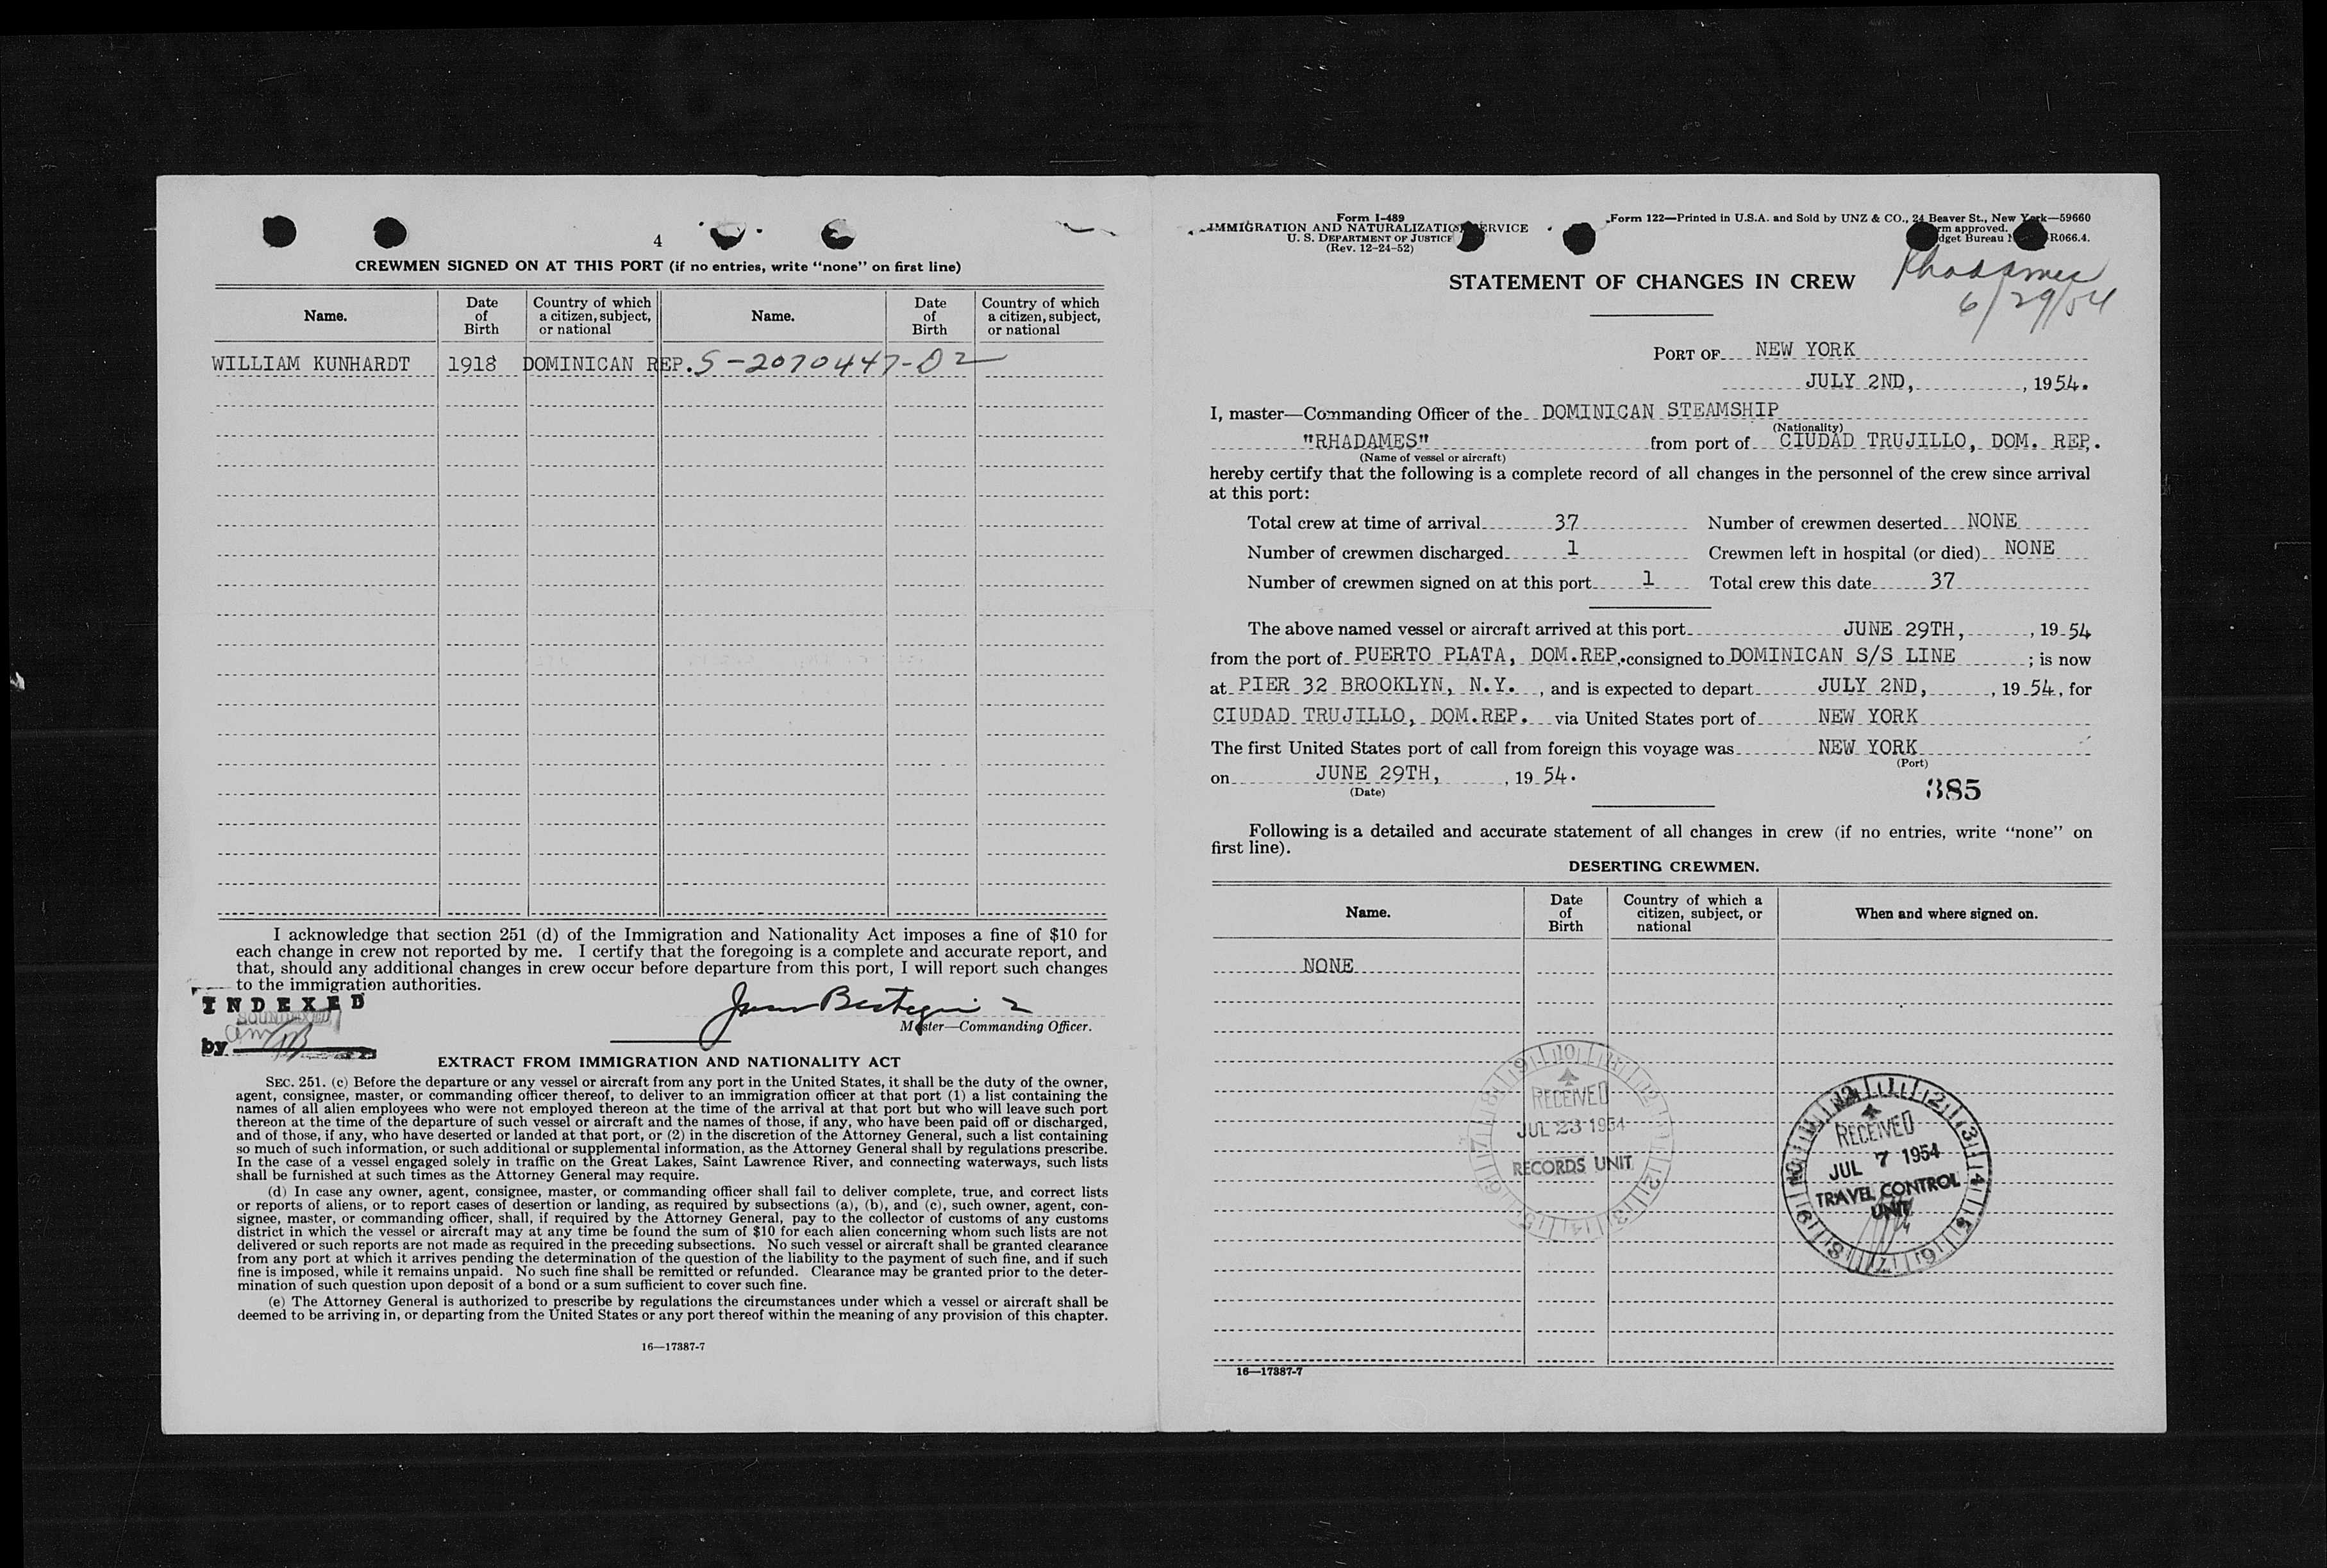 4
CREWMEN SIGNED ON AT THIS PORT (if no entries, write "none" on first line)
Name.
Date of Birth
Country of which a citizen, subject, or national
Name.
Date of Birth
Country of which a citizen, subject, or national
WILLIAM KUNHARDT 1918 DOMINICAN REP. S-2070447-D2
I acknowledge that section 251 (d) of the Immigration and Nationality Act imposes a fine of $10 for
each change in crew not reported by me. I certify that the foregoing is a complete and accurate report, and
that, should any additional changes in crew occur before departure from this port, I will report such changes
to the immigration authorities.
INDEXED
SOUNDEXED
by
Master—Commanding Officer.
EXTRACT FROM IMMIGRATION AND NATIONALITY ACT
SEC. 251. (c) Before the departure or any vessel or aircraft from any port in the United States, it shall be the duty of the owner,
agent, consignee, master, or commanding officer thereof, to deliver to an immigration officer at that port (1) a list containing the
names of all alien employees who were not employed thereon at the time of the arrival at that port but who will leave such port
thereon at the time of the departure of such vessel or aircraft and the names of those, if any, who have been paid off or discharged,
and of those, if any, who have deserted or landed at that port, or (2) in the discretion of the Attorney General, such a list containing
so much of such information, or such additional or supplemental information, as the Attorney General shall by regulations prescribe.
In the case of a vessel engaged solely in traffic on the Great Lakes, Saint Lawrence River, and connecting waterways, such lists
shall be furnished at such times as the Attorney General may require.
(d) In case any owner, agent, consignee, master, or commanding officer shall fail to deliver complete, true, and correct lists
or reports of aliens, or to report cases of desertion or landing, as required by subsections (a), (b), and (c), such owner, agent, con-
signee, master, or commanding officer, shall, if required by the Attorney General, pay to the collector of customs of any customs
district in which the vessel or aircraft may at any time be found the sum of $10 for each alien concerning whom such lists are not
delivered or such reports are not made as required in the preceding subsections. No such vessel or aircraft shall be granted clearance
from any port at which it arrives pending the determination of the question of the liability to the payment of such fine, and if such
fine is imposed, while it remains unpaid. No such fine shall be remitted or refunded. Clearance may be granted prior to the deter-
mination of such question upon deposit of a bond or a sum sufficient to cover such fine.
(e) The Attorney General is authorized to prescribe by regulations the circumstances under which a vessel or aircraft shall be
deemed to be arriving in, or departing from the United States or any port thereof within the meaning of any provision of this chapter.
16—17387-7
Form I-489
IMMIGRATION AND NATURALIZATION SERVICE
U. S. DEPARTMENT OF JUSTICE
(Rev. 12-24-52)
Form 122—Printed in U.S.A. and Sold by UNZ & CO., 24 Beaver St., New York—59660
approved.
Bureau R066.4.
Rhadames
6/29/54
STATEMENT OF CHANGES IN CREW
PORT OF NEW YORK
JULY 2ND, , 1954.
I, master—Commanding Officer of the DOMINICAN STEAMSHIP
(Nationality)
"RHADAMES" from port of CIUDAD TRUJILLO, DOM. REP.
(Name of vessel or aircraft)
hereby certify that the following is a complete record of all changes in the personnel of the crew since arrival
at this port:
Total crew at time of arrival 37 Number of crewmen deserted NONE
Number of crewmen discharged 1 Crewmen left in hospital (or died) NONE
Number of crewmen signed on at this port 1 Total crew this date 37
The above named vessel or aircraft arrived at this port JUNE 29TH, , 19 54
from the port of PUERTO PLATA, DOM.REP. consigned to DOMINICAN S/S LINE ; is now
at PIER 32 BROOKLYN, N.Y. , and is expected to depart JULY 2ND, , 19 54, for
CIUDAD TRUJILLO, DOM.REP. via United States port of NEW YORK
The first United States port of call from foreign this voyage was NEW YORK
(Port)
on JUNE 29TH, , 19 54.
(Date)
385
Following is a detailed and accurate statement of all changes in crew (if no entries, write "none" on
first line).
DESERTING CREWMEN.
Name.
Date of Birth
Country of which a citizen, subject, or national
When and where signed on.
NONE
RECEIVED
JUL 23 1954
RECORDS UNIT
RECEIVED
JUL 7 1954
TRAVEL CONTROL
UNIT
16—17387-7